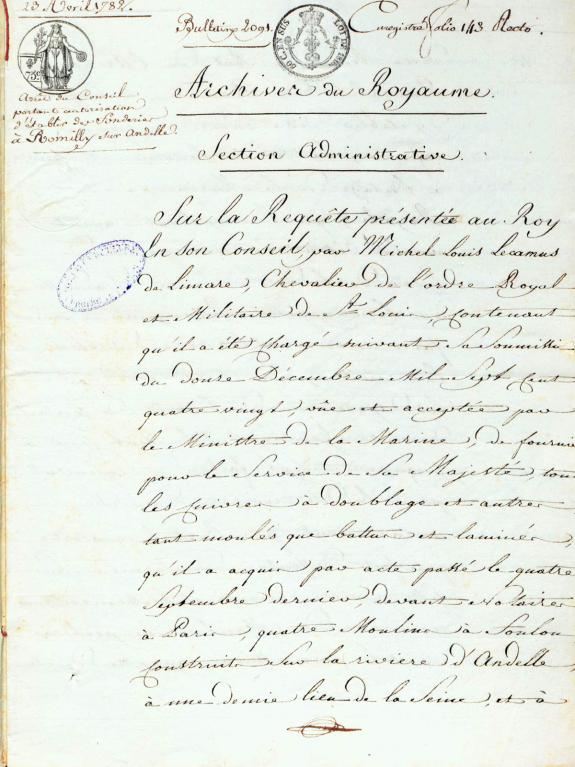 13 Avril 1782.
Bulletin 2091.
Enregistré folio 143 Recto.
75c
Arrêt du Conseil
portant autorisation
d'établir des Fonderies
à Romilly sur Andelle.
Archives du Royaume.
Section Administrative.
Sur la Requête présentée au Roy
En son Conseil, par Michel Louis Lecamus
de Limare, Chevalier de l'ordre Royal
et Militaire de St Louis, contenant
qu'il a été chargé suivant Sa Soumission
du douze Décembre Mil Sept Cent
quatre vingt, vûe et acceptée par
le Ministre de la Marine, de fournir
pour le Service de Sa Majesté, tous
les cuivres à doublage et autres
tant moulés que battus et laminés,
qu'il a acquis par acte passé le quatre
Septembre dernier, devant Notaires
à Paris, quatre Moulins à Foulon
construits Sur la rivière d'Andelle,
à une demie lieu de la Seine, et à